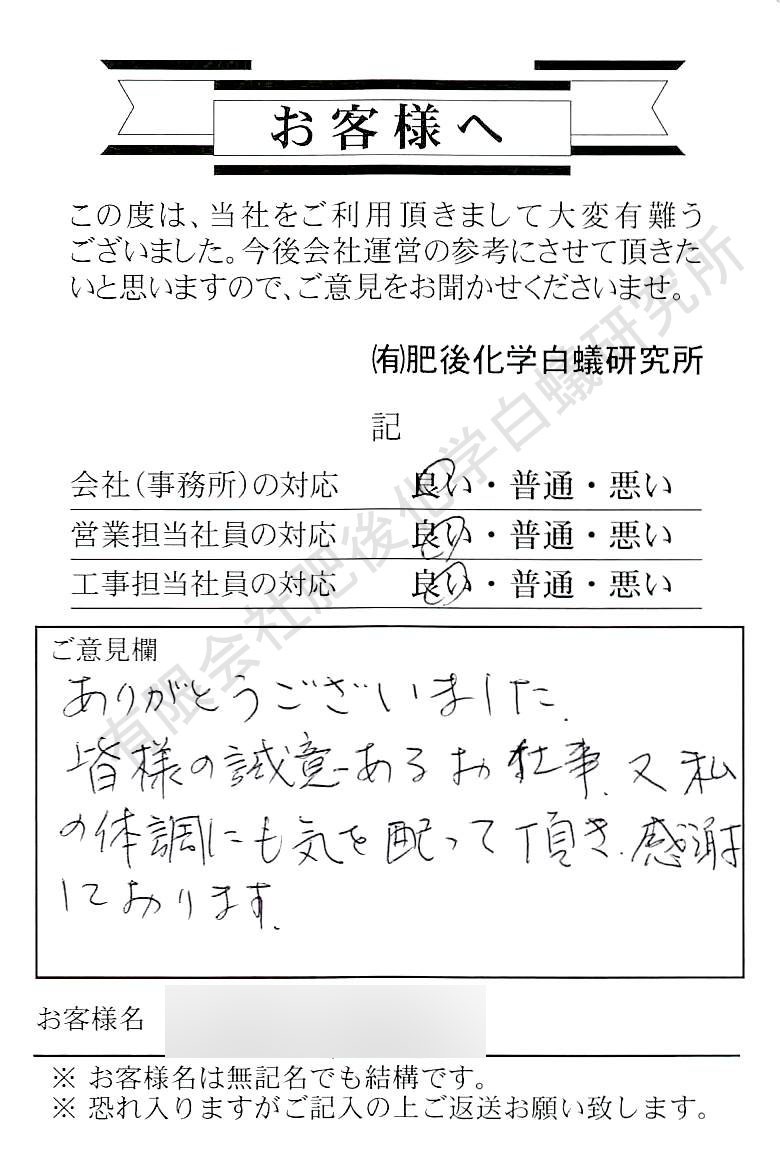 お客様へ
この度は、当社をご利用頂きまして大変有難う
ございました。今後会社運営の参考にさせて頂きた
いと思いますので、ご意見をお聞かせくださいませ。
㈲肥後化学白蟻研究所
記
会社(事務所)の対応 良い・普通・悪い
営業担当社員の対応 良い・普通・悪い
工事担当社員の対応 良い・普通・悪い
ご意見欄
ありがとうございました.
皆様の誠意あるお仕事、又私
の体調にも気を配って頂き、感謝
しております.
お客様名
※ お客様名は無記名でも結構です。
※ 恐れ入りますがご記入の上ご返送お願い致します。
有限会社肥後化学白蟻研究所